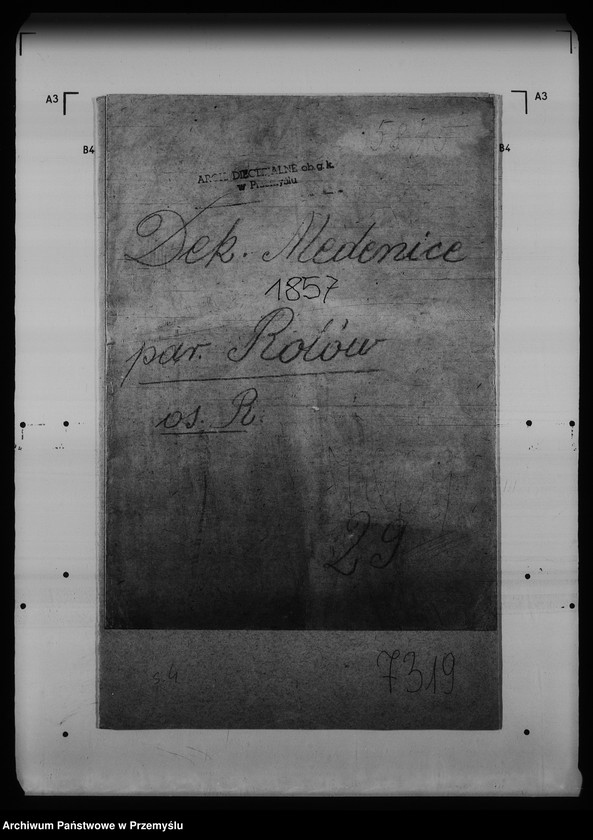 A3
A3
B4
B4
ARCH. DIECEZJALNE ob.g.k.
w Przemyślu
Dek. Medenice
1857
par. Rołów
os. R.
29
s.4
7319
Archiwum Państwowe w Przemyślu